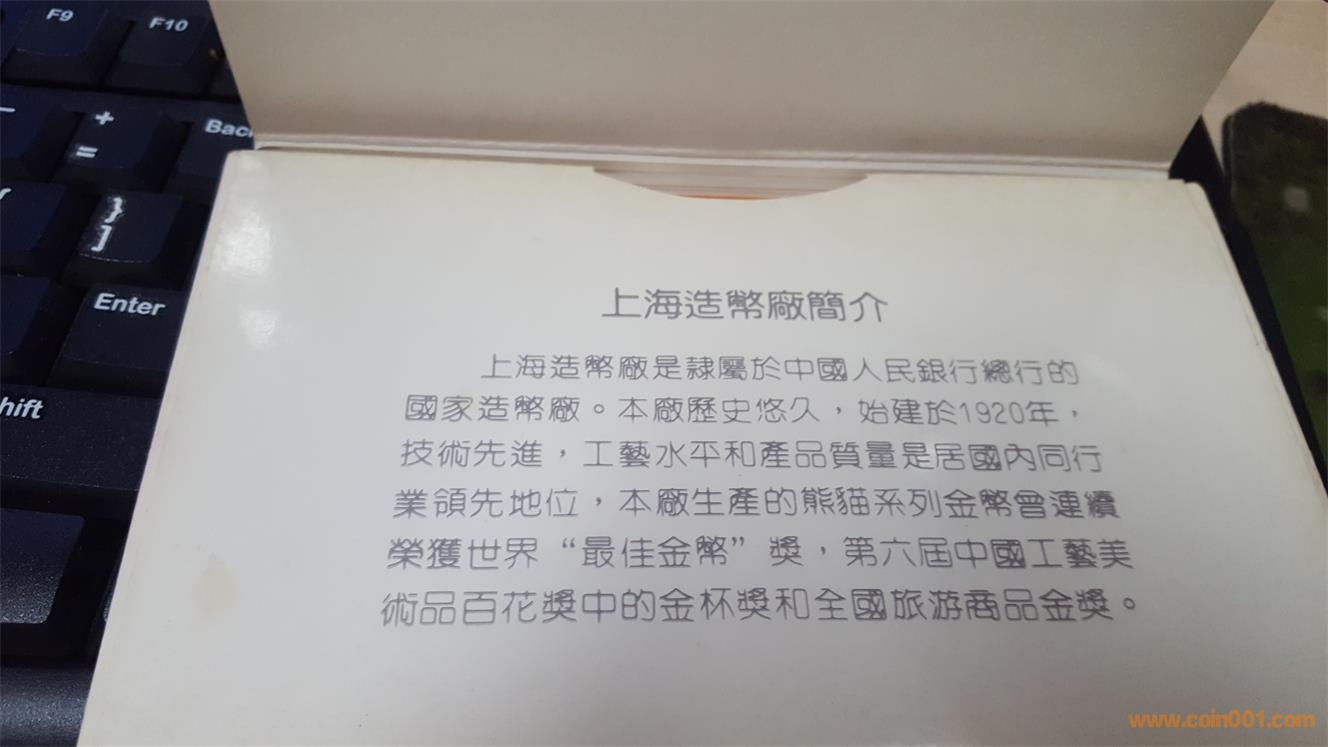 F9
F10
+
=
Bac
}
]
Enter
hift
上海造幣廠簡介
上海造幣廠是隸屬於中國人民銀行總行的
國家造幣廠。本廠歷史悠久，始建於1920年，
技術先進，工藝水平和產品質量是居國內同行
業領先地位，本廠生產的熊貓系列金幣曾連續
榮獲世界“最佳金幣”獎，第六屆中國工藝美
術品百花獎中的金杯獎和全國旅游商品金獎。
www.coin001.com